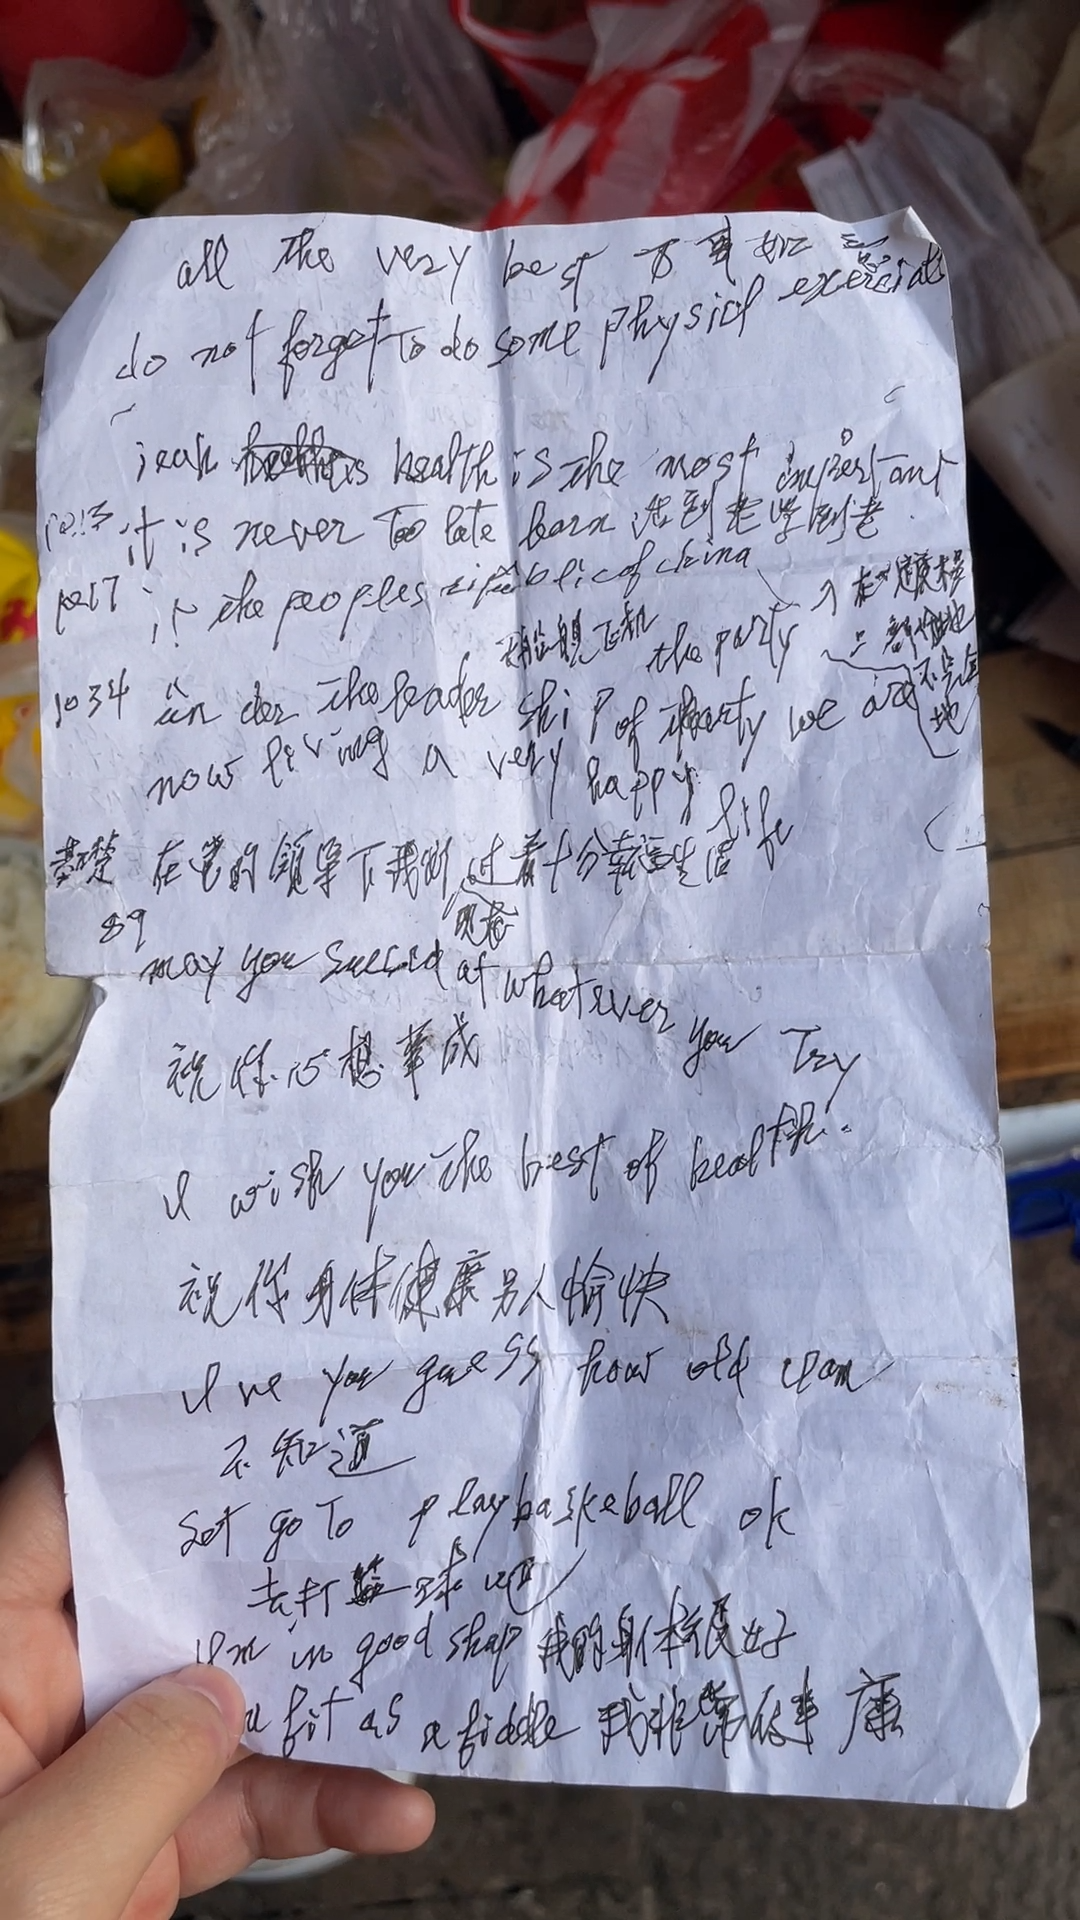 all the very best 万事如意
do not forget to do some physicl
health is the most impertant
it is never too late learn 活到老学到老
the peoples of china
飞机
the party
1034 un der the leader shi p of we are
now living a very happy life
基础 在党的领导下我们过着十分幸福生活
现在
89
may you at whatever you Try
祝你心想事成
I wish you the best of health.
祝你身体健康 愉快
you guess how old
不知道
Let go To playbaskeball ok
去打篮球吧
in good shap 我的身体很好
fit as a fiddle 我非常健康